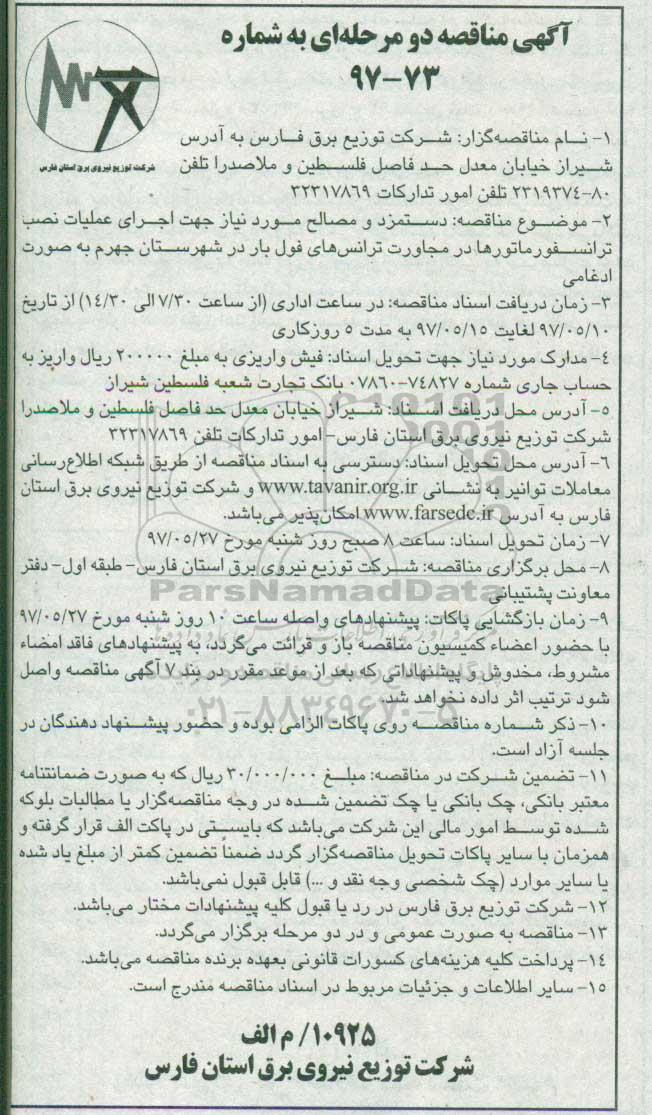 آگهی مناقصه دو مرحله‌ای به شماره
۹۷-۷۳
شرکت توزیع نیروی برق استان فارس
۱- نـام مناقصه‌گزار: شـرکت توزیع برق فـارس به آدرس
شـیراز خیابان معدل حـد فاصل فلسـطین و ملاصدرا تلفن
۸۰-۲۳۱۹۳۷۴ تلفن امور تدارکات ۳۲۳۱۷۸۶۹
۲- موضـوع مناقصه: دسـتمزد و مصالح مـورد نیاز جهت اجـرای عملیات نصب
ترانسـفورماتورها در مجاورت ترانس‌های فول بار در شهرسـتان جهرم به صورت
ادغامی
۳- زمان دریافت اسناد مناقصه: در ساعت اداری (از ساعت ۷/۳۰ الی ۱۴/۳۰) از تاریخ
۹۷/۰۵/۱۰ لغایت ۹۷/۰۵/۱۵ به مدت ۵ روزکاری
۴- مدارک مورد نیاز جهت تحویل اسناد: فیش واریزی به مبلغ ۲۰۰۰۰۰ ریال واریز به
حساب جاری شماره ۷۴۸۲۷-۰۷۸۶۰ بانک تجارت شعبه فلسطین شیراز
۵- آدرس محل دریافت اسـناد: شـیراز خیابان معدل حد فاصل فلسطین و ملاصدرا
شرکت توزیع نیروی برق استان فارس- امور تدارکات تلفن ۳۲۳۱۷۸۶۹
۶- آدرس محل تحویل اسناد: دسترسی به اسناد مناقصه از طریق شبکه اطلاع‌رسانی
معاملات توانیر به نشـانی www.tavanir.org.ir و شرکت توزیع نیروی برق استان
فارس به آدرس www.farsedc.ir امکان‌پذیر می‌باشد.
۷- زمان تحویل اسناد: ساعت ۸ صبح روز شنبه مورخ ۹۷/۰۵/۲۷
۸- محل برگزاری مناقصه: شـرکت توزیع نیروی برق استان فارس- طبقه اول- دفتر
معاونت پشتیبانی
ParsNamadData
۹- زمان بازگشایی پاکات: پیشنهادهای واصله ساعت ۱۰ روز شنبه مورخ ۹۷/۰۵/۲۷
با حضور اعضاء کمیسیون مناقصه باز و قرائت می‌گردد، به پیشنهادهای فاقد امضاء
مشروط، مخدوش و پیشنهاداتی که بعد از موعد مقرر در بند ۷ آگهی مناقصه واصل
شود ترتیب اثر داده نخواهد شد.
۰۲۱-۸۸۳۴۹۶۷۰-۵
۱۰- ذکر شـماره مناقصـه روی پاکات الزامی بوده و حضور پیشـنهاد دهندگان در
جلسه آزاد است.
۱۱- تضمین شـرکت در مناقصه: مبلـغ ۳۰/۰۰۰/۰۰۰ ریال که به صورت ضمانتنامه
معتبر بانکی، چک بانکی یا چک تضمین شـده در وجه مناقصه‌گزار یا مطالبات بلوکه
شـده توسـط امور مالی این شرکت می‌باشد که بایسـتی در پاکت الف قرار گرفته و
همزمان با سایر پاکات تحویل مناقصه‌گزار گردد ضمناً تضمین کمتر از مبلغ یاد شده
یا سایر موارد (چک شخصی وجه نقد و ...) قابل قبول نمی‌باشد.
۱۲- شرکت توزیع برق فارس در رد یا قبول کلیه پیشنهادات مختار می‌باشد.
۱۳- مناقصه به صورت عمومی و در دو مرحله برگزار می‌گردد.
۱۴- پرداخت کلیه هزینه‌های کسورات قانونی بعهده برنده مناقصه می‌باشد.
۱۵- سایر اطلاعات و جزئیات مربوط در اسناد مناقصه مندرج است.
۱۰۹۲۵/ م الف
شرکت توزیع نیروی برق استان فارس